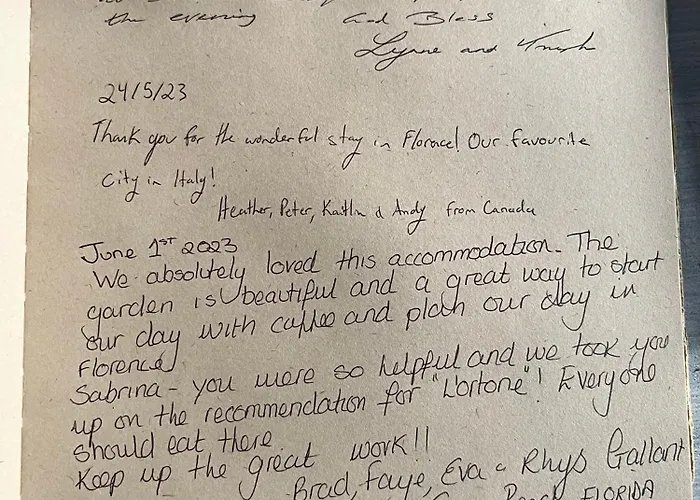 the evening And Bless
Lynne and Trish
24/5/23
Thank you for the wonderful stay in Florence! Our favourite
City in Italy!
Heather, Peter, Kaitlin & Andy from Canada
June 1ST 2023
We absolutely loved this accommodation. The
garden is beautiful and a great way to start
our day with coffee and plan our day in
Florence
Sabrina - you were so helpful and we took you
up on the recommendation for "L'ortone"! Everyone
should eat there
Keep up the great work!!
Brad, Faye, Eva & Rhys Gallant
FLORIDA